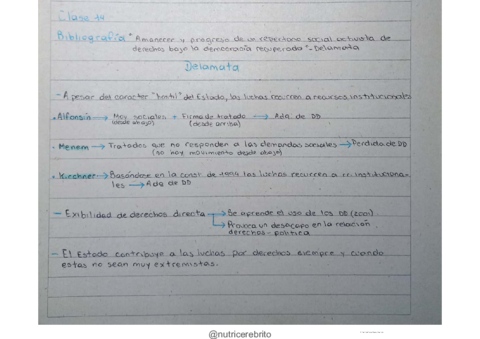 Clase 14
Bibliografía "Amanecer y progreso de un repertorio social activista de
derechos bajo la democracia recuperada" - Delamata
Delamata
- A pesar del caracter "hostil" del Estado, las luchas recurren a recursos institucionales
• Alfonsín → Mov sociales + Firma de tratado → Adq. de DD
(desde abajo) (desde arriba)
• Menem → Tratados que no responden a las demandas sociales → Perdida de DD
(no hay movimiento desde abajo)
• Kirchner → Basándose en la const. de 1994 las luchas recurren a rr. instituciona-
les → Adq de DD
- Exibilidad de derechos directa → Se aprende el uso de los DD (2001)
→ Provoca un desacople en la relación
derechos - política
- El Estado contribuye a las luchas por derechos siempre y cuando
estas no sean muy extremistas.
@nutricerebrito